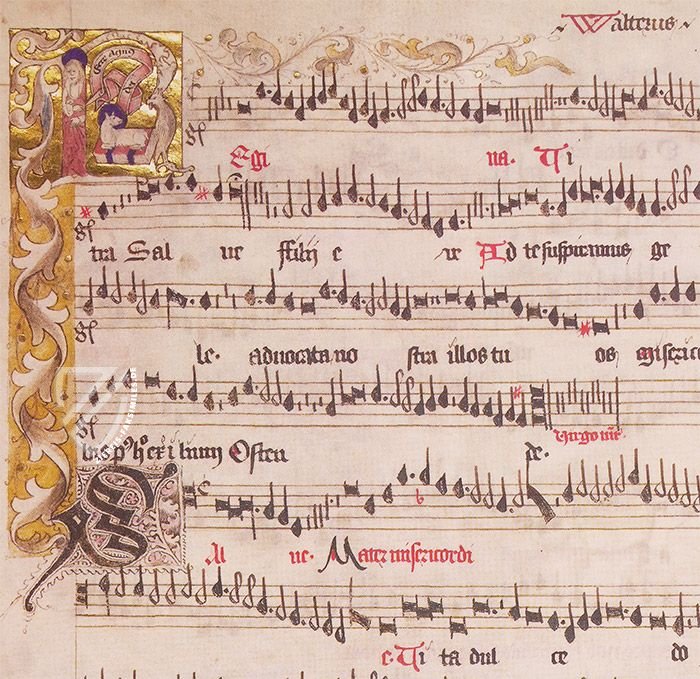 Walterus
Egi na. Ti
tra Sal ue ffilij e ue Ad te suspiramus ge
le. aduocata no stra illos tu os misericor
bus Osten de. Virgo
Al ue. Mater misericordi
e. Ti ta dul ce do